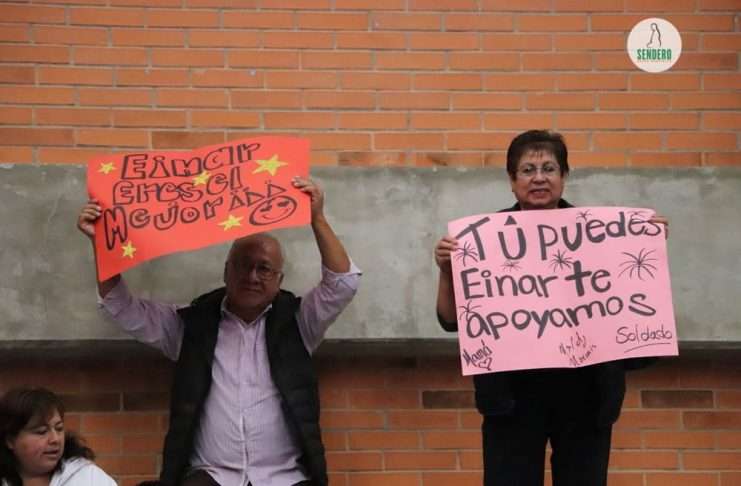 SENDERO
Einar
Eres el
Mejor
Tú puedes
Einar te
apoyamos
Mamá
Soldado